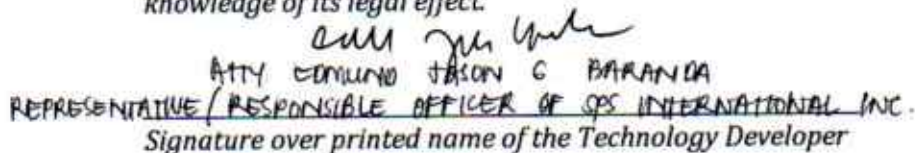 knowledge of its legal effect.
ATTY EDMUND JASON G BARANDA
REPRESENTATIVE / RESPONSIBLE OFFICER OF SPS INTERNATIONAL INC.
Signature over printed name of the Technology Developer